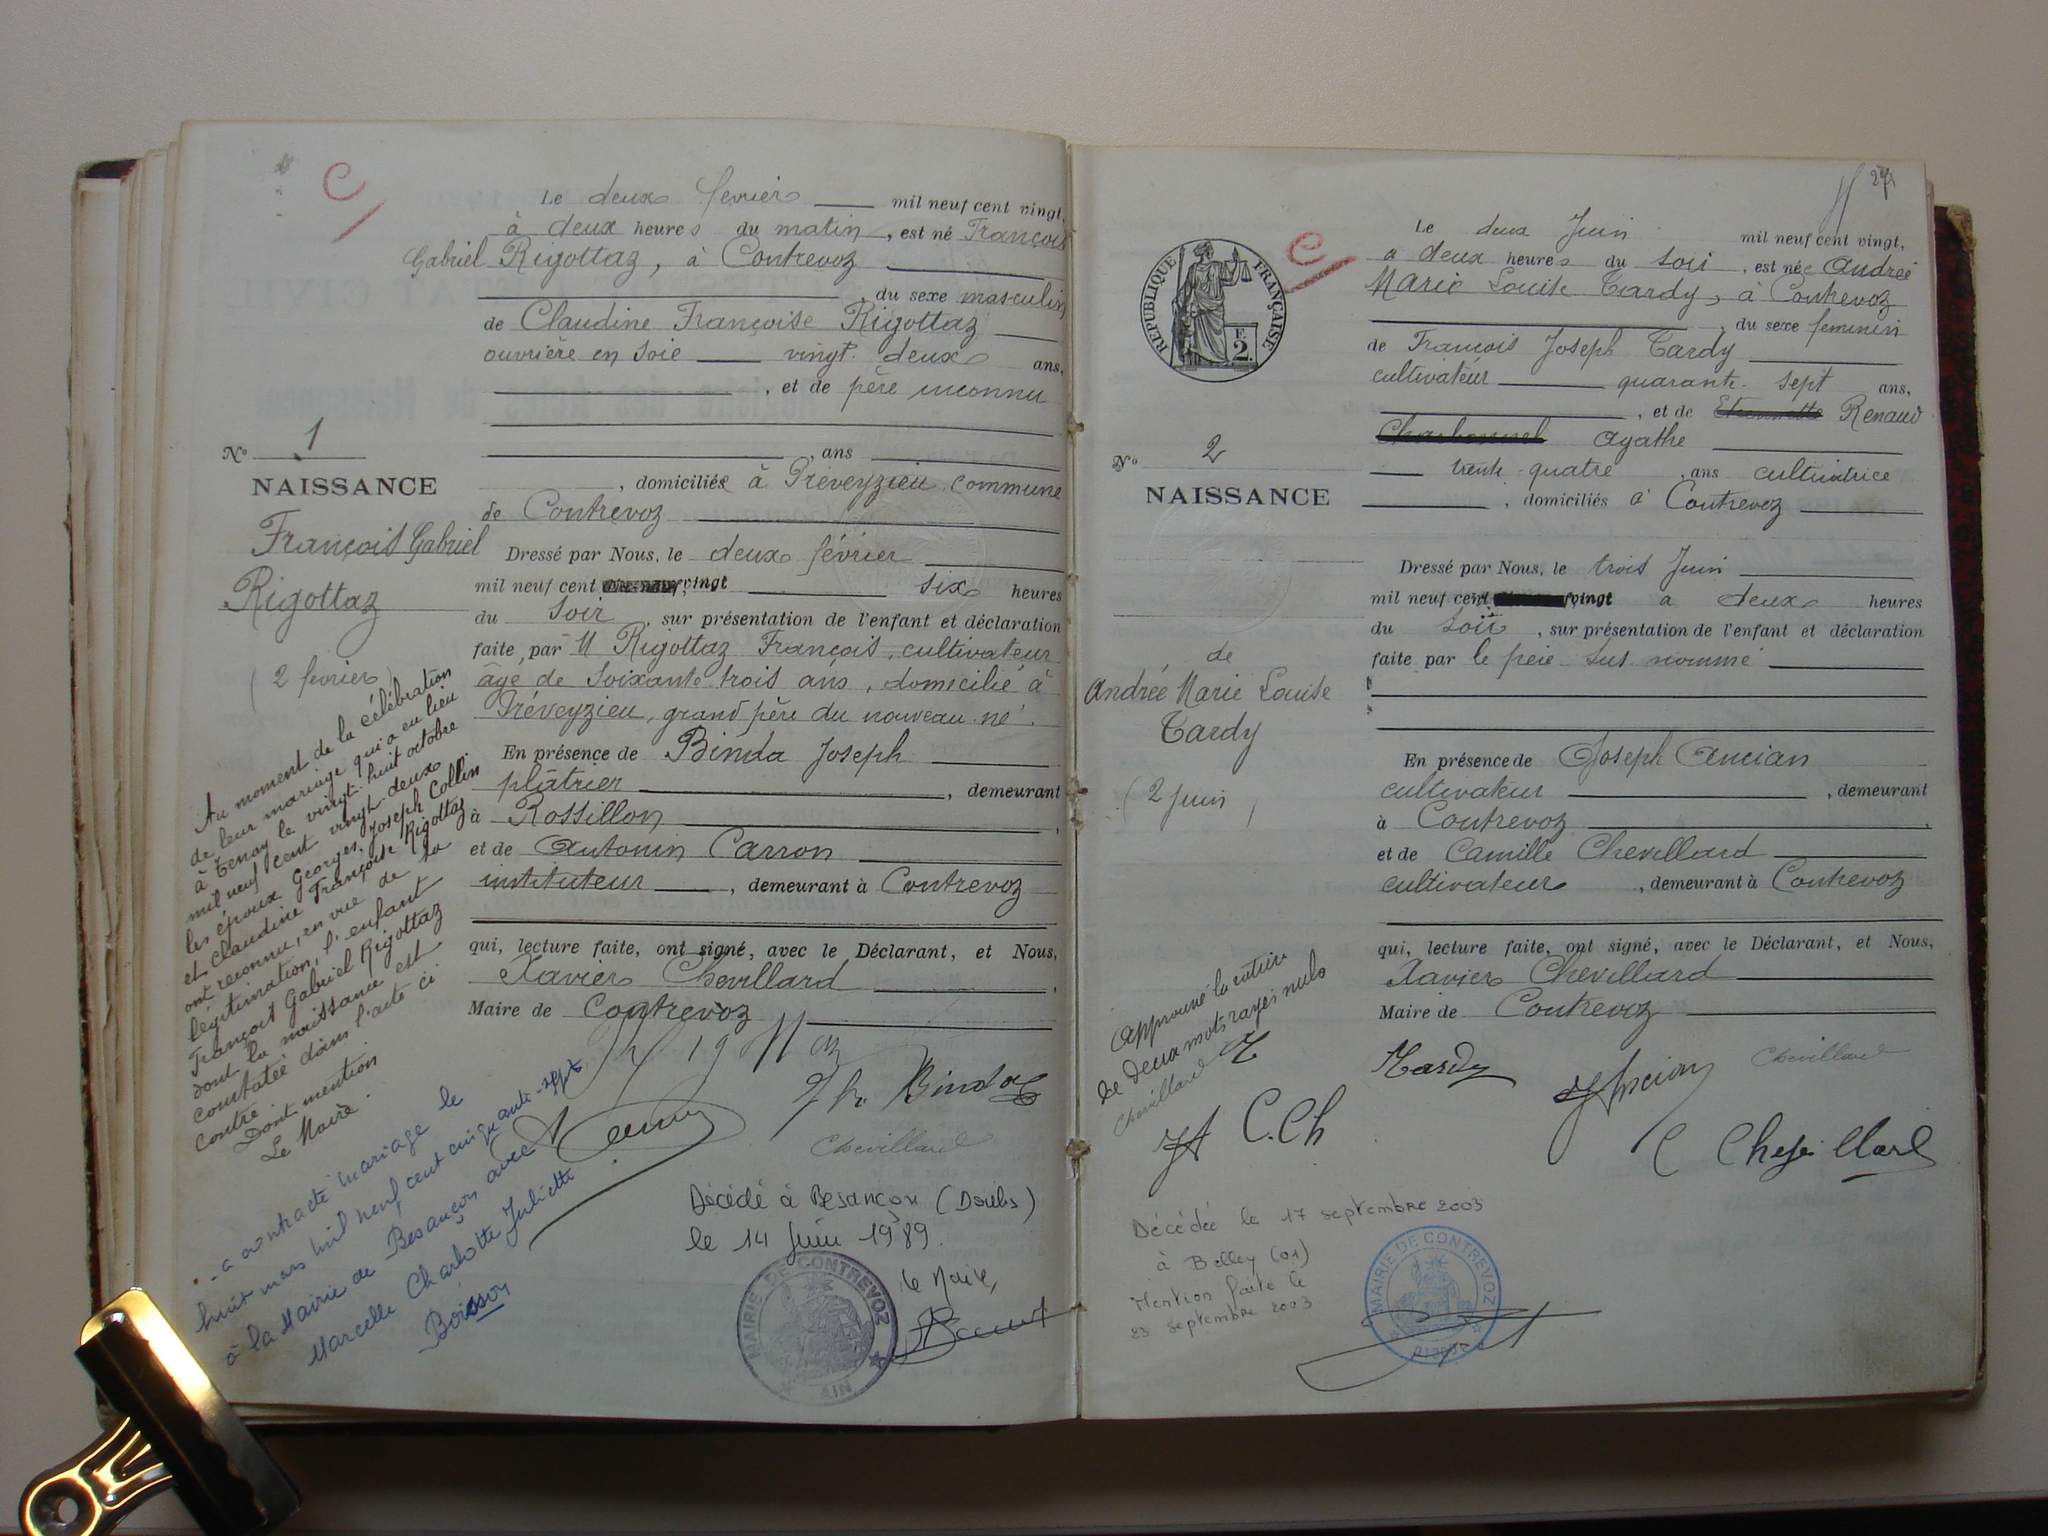 Le deux fevrier mil neuf cent vingt,
à deux heures du matin, est né François
Gabriel Rigottaz, à Contrevoz
du sexe masculin
de Claudine Françoise Rigottaz
ouvrière en soie vingt deux ans,
, et de père inconnu
, ans
, domiciliée à Préveyzieu commune
de Contrevoz
Nº 1
NAISSANCE
François Gabriel
Rigottaz
(2 fevrier)
Dressé par Nous, le deux février
mil neuf cent vingt six heures
du soir, sur présentation de l'enfant et déclaration
faite par M Rigottaz François, cultivateur
âgé de soixante-trois ans, domicilié à
Préveyzieu, grand père du nouveau-né.
En présence de Binda Joseph
plâtrier, demeurant
à Rossillon,
et de Antonin Carron
instituteur, demeurant à Contrevoz
qui, lecture faite, ont signé, avec le Déclarant, et Nous,
Xavier Chevillard,
Maire de Contrevoz
Au moment de la célébration
de leur mariage qui a eu lieu
à Tenay le vingt-huit octobre
mil neuf cent vingt-deux
les époux Georges, Joseph Collin
et Claudine Françoise Rigottaz
ont reconnu, en vue de sa
légitimation, l'enfant
François Gabriel Rigottaz
dont la naissance est
constatée dans l'acte ci
contre.
Dont mention
Le Maire.
a contracté mariage le
huit mars mil neuf cent cinquante-sept
à la Mairie de Besançon avec
Marcelle Charlotte Juliette
Boisson
Binda
Chevillard
Décédé à Besançon (Doubs)
le 14 Juin 1989.
Le Maire,
MAIRIE DE CONTREVOZ
AIN
27
RÉPUBLIQUE FRANÇAISE
F.
2.
Le deux Juin mil neuf cent vingt,
a deux heures du soir, est née Andrée
Marie Louise Tardy, à Contrevoz
, du sexe feminin
de François Joseph Tardy
cultivateur quarante-sept ans,
, et de Etiennette Renaud
Charbonnel Agathe
trente-quatre, ans cultivatrice
, domiciliés à Contrevoz
Nº 2
NAISSANCE
de
Andrée Marie Louise
Tardy
(2 Juin)
Dressé par Nous, le trois Juin
mil neuf cent vingt a deux heures
du soir, sur présentation de l'enfant et déclaration
faite par le père sus nommé
En présence de Joseph Ancian
cultivateur, demeurant
à Contrevoz,
et de Camille Chevillard
cultivateur, demeurant à Contrevoz
qui, lecture faite, ont signé, avec le Déclarant, et Nous,
Xavier Chevillard
Maire de Contrevoz
Approuvé la rature
de deux mots rayés nuls
Chevillard
JA C.Ch
Tardy
J Ancian
Chevillard
C Chevillard
Décédée le 17 septembre 2003
à Belley (01)
Mention faite le
23 septembre 2003
MAIRIE DE CONTREVOZ